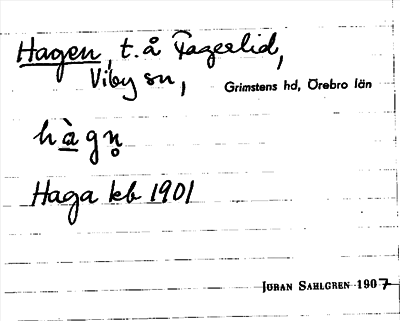 Hagen, t. å Fagerlid,
Viby sn, Grimstens hd, Örebro län
hàgn̥
Haga kb 1901
JÖRAN SAHLGREN 1907